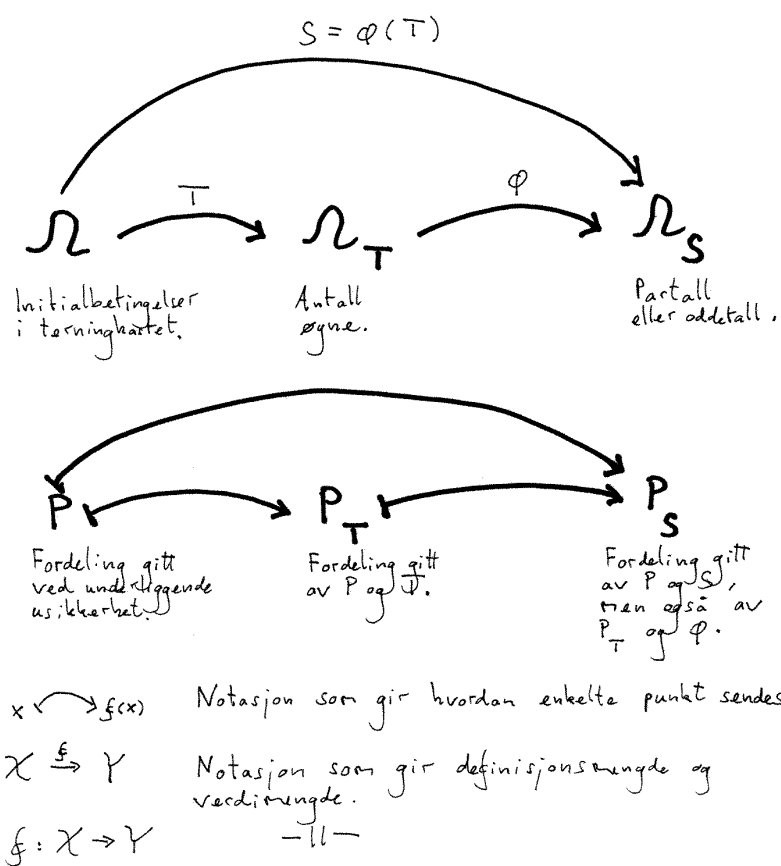 S = φ(T)
T
φ
Ω
Ω_T
Ω_S
Initialbetingelser
i terningkastet.
Antall
øyne.
Partall
eller oddetall.
P
P_T
P_S
Fordeling gitt
ved underliggende
usikkerhet.
Fordeling gitt
av P og T.
Fordeling gitt
av P og S,
men også av
P_T og φ.
x ↦ f(x) Notasjon som gir hvordan enkelte punkt sendes
X f→ Y Notasjon som gir definisjonsmengde og
verdimengde.
f : X → Y —||—